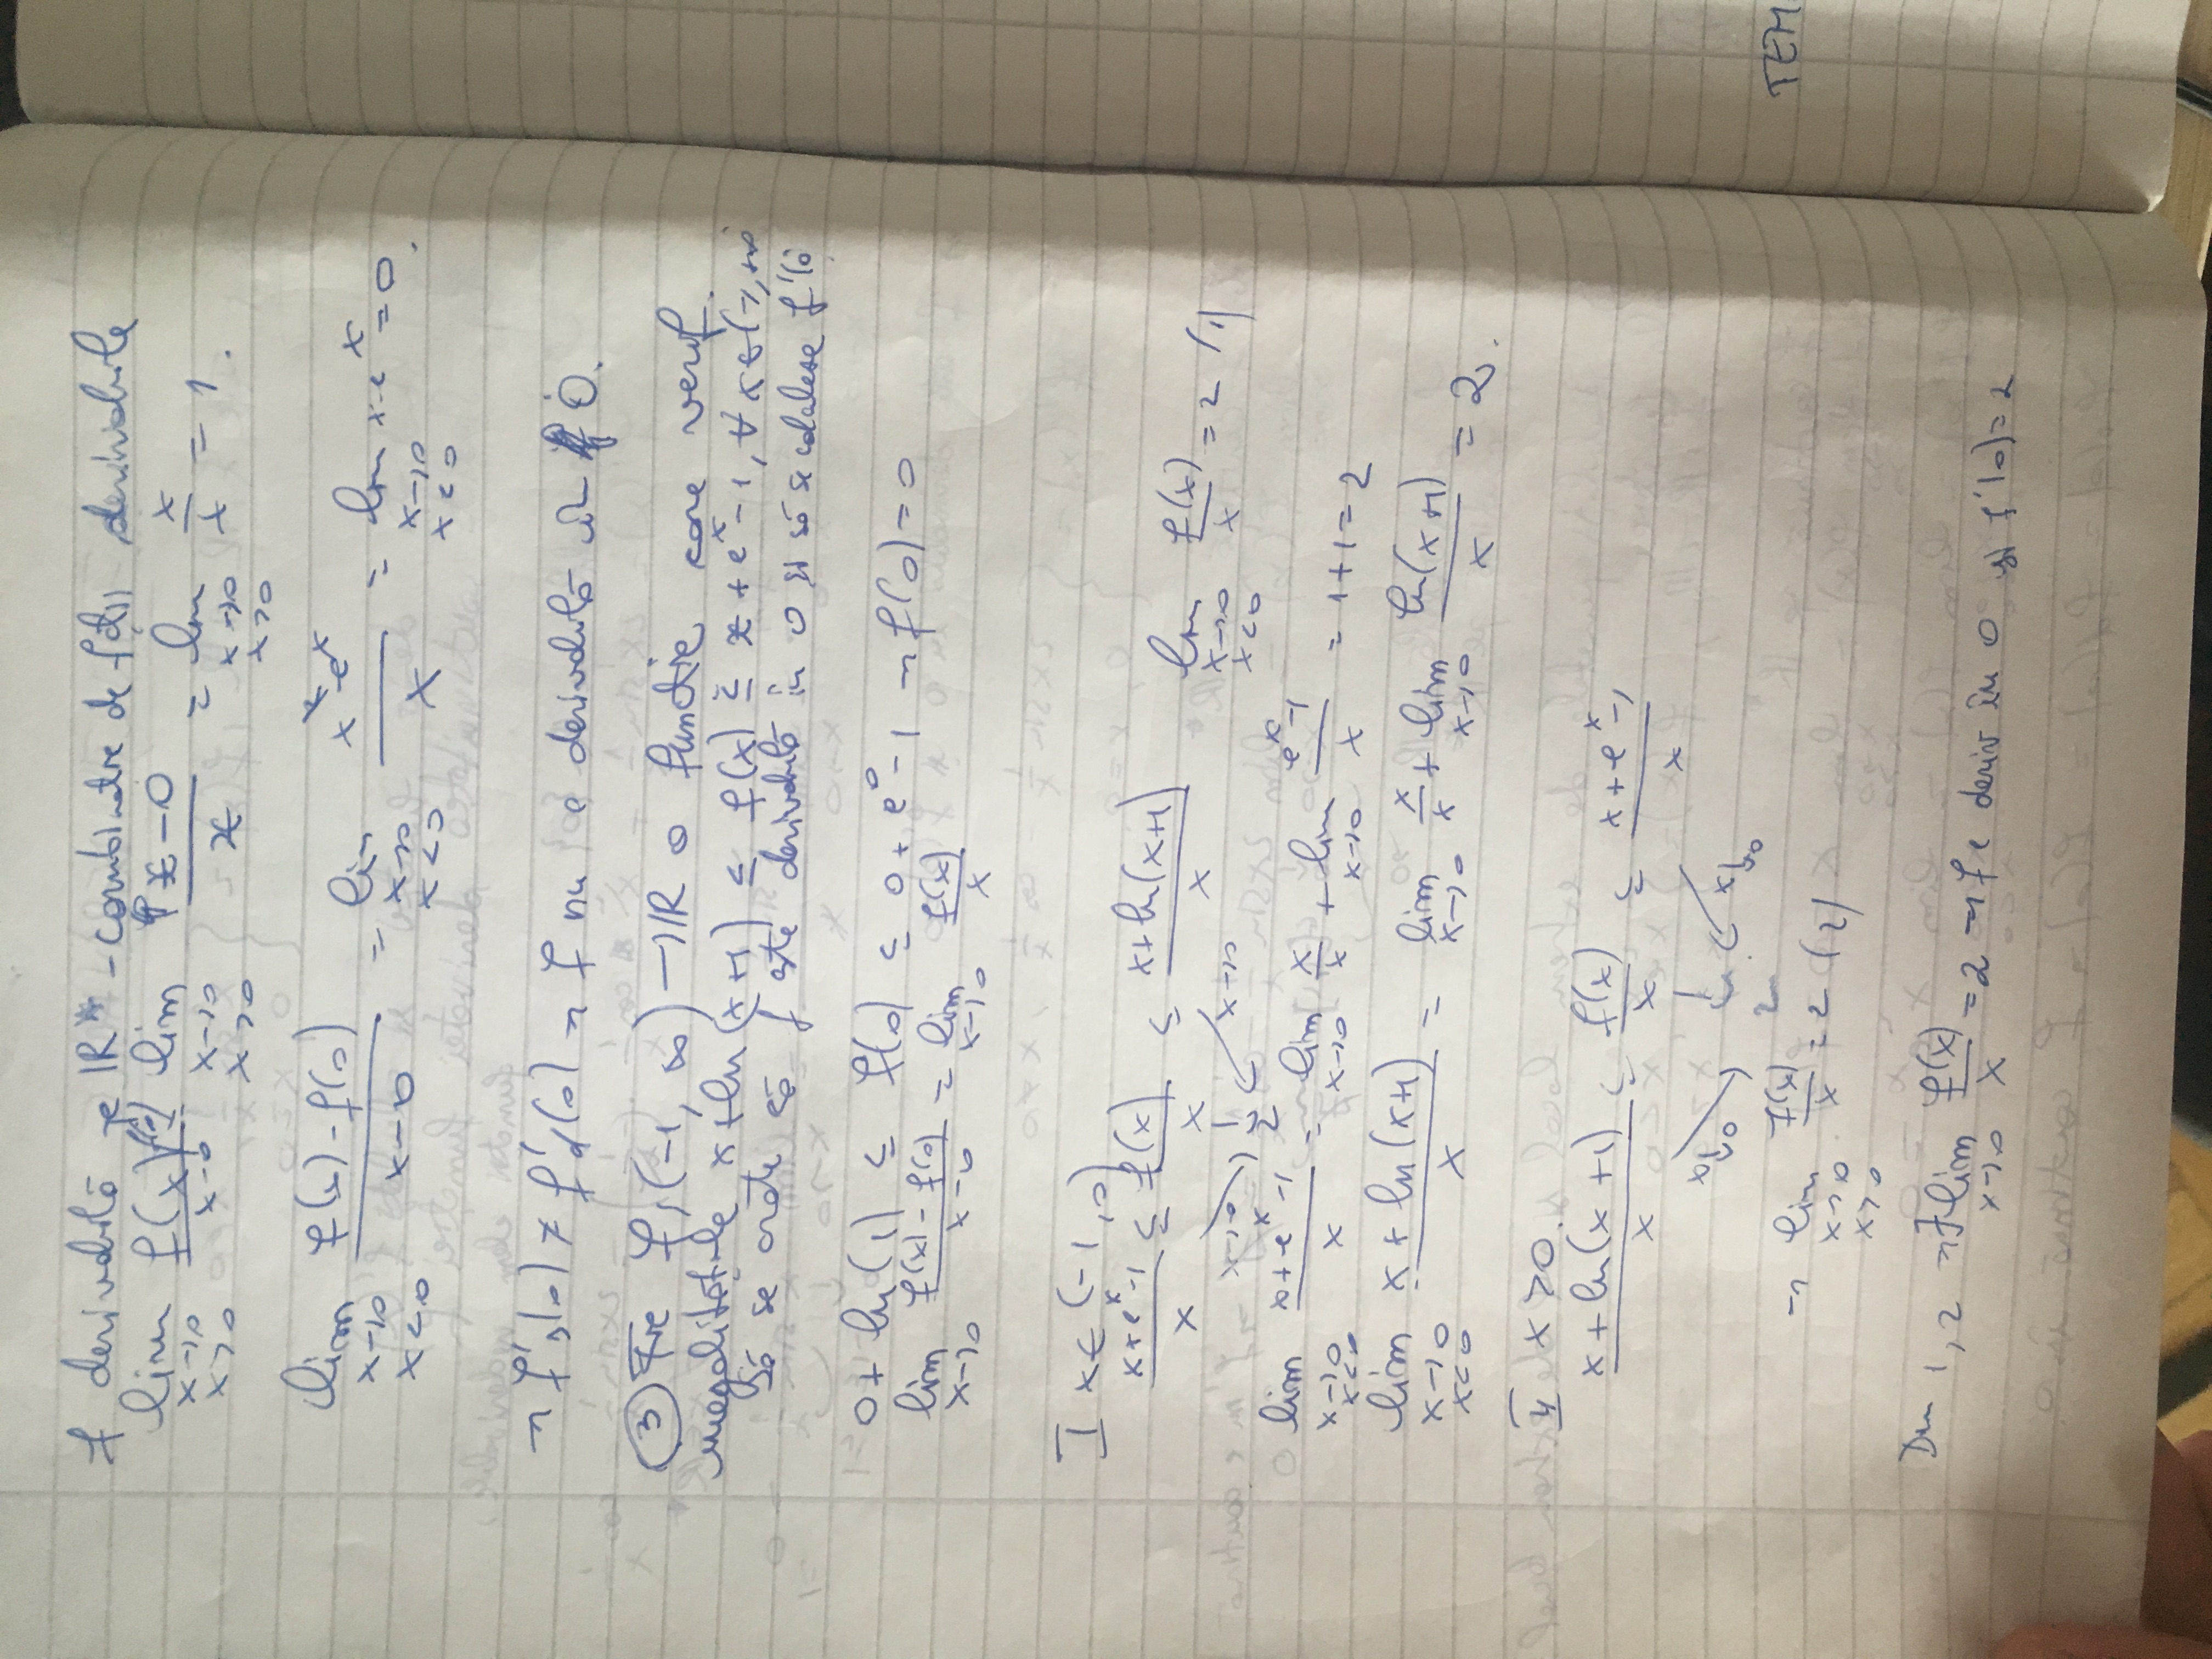 f derivabilă pe IR* - combinatie de fctii derivabile
lim x→0 x>0 f(x) / x-0 = lim x→0 x>0 x-0 / x = lim x→0 x>0 x/x = 1.
lim x→0 x<0 f(x)-f(0) / x-0 = lim x→0 x<0 x² e^x / x = lim x→0 x<0 x·e^x = 0.
→ f's(0) ≠ f'd(0) → f nu e derivabilă în 0.
③ Fie f: (-1, ∞) → IR o functie care verif.
inegalitățile x+ln(x+1) ≤ f(x) ≤ x+e^x-1, ∀ x∈(-1,+∞
Să se arate că f este derivabilă în 0 și să se calculeze f'(0
0+ ln(1) ≤ f(0) ≤ 0+e^0-1 → f(0)=0
lim x→0 f(x)-f(0) / x-0 = lim x→0 f(x)/x
I x∈(-1,0)
x+e^x-1 / x ≤ f(x)/x ≤ x+ln(x+1) / x lim x→0 x<0 f(x)/x = 2 (1)
x→0 x→0
2
lim x→0 x<0 x+e^x-1 / x = lim x→0 x/x + lim x→0 e^x-1 / x = 1+1=2
lim x→0 x<0 x+ln(x+1) / x = lim x→0 x/x + lim x→0 ln(x+1) / x = 2.
II x>0.
x+ln(x+1) / x ≤ f(x)/x ≤ x+e^x-1 / x
x→0 x→0
2
→ lim x→0 x>0 f(x)/x = 2 (2)
Din 1,2 → ∃ lim x→0 f(x)/x = 2 → f e deriv în 0 și f'(0)=2
TEM